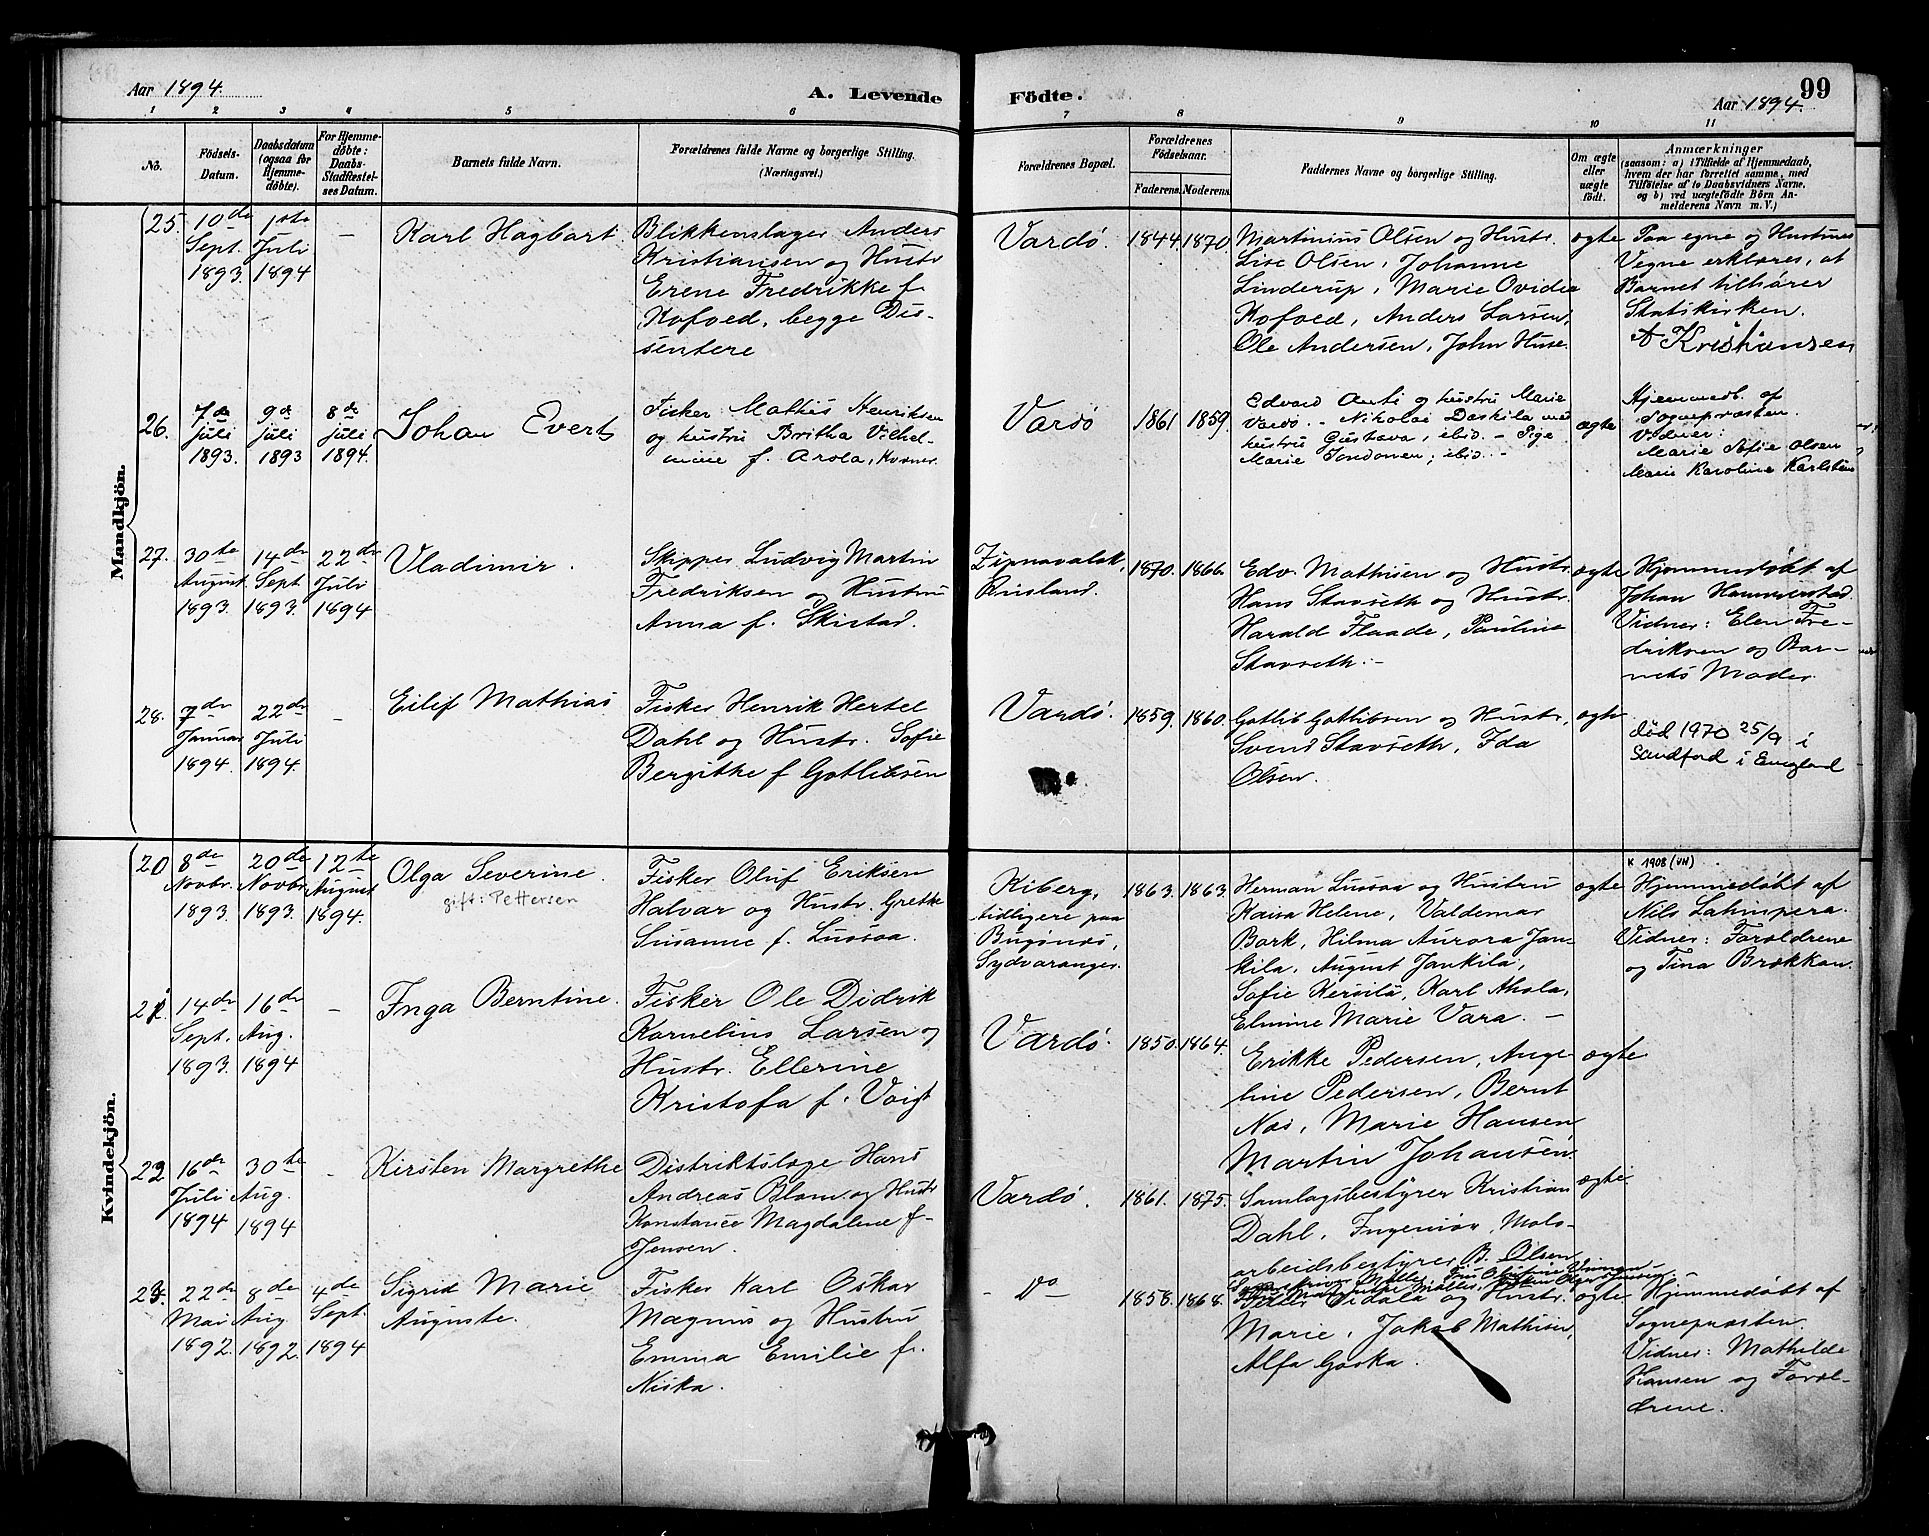 Aar 1894.
A. Levende
Födte.
99
Aar 1894.
1 2 3 4 5 6 7 8 9 10 11
No.
Födsels-
Datum.
Daabsdatum
(ogsaa for
Hjemme-
döbte).
For Hjemme-
döbte:
Daabs-
Stadfæstel-
ses Datum.
Barnets fulde Navn.
Forældrenes fulde Navne og borgerlige Stilling.
(Næringsvei.)
Forældrenes Bopæl.
Forældrenes
Födselsaar.
Faderens. Moderens.
Faddernes Navne og borgerlige Stilling.
Om ægte
eller
uægte
födt.
Anmærkninger
(saasom: a) i Tilfælde af Hjemmedaab,
hvem der har forrettet samme, med
Tilföielse af to Daabsvidners Navne,
og b) ved uægtefödte Börn An-
melderens Navn m. V.)
Mandkjön.
25.
10de
Sept.
1893.
1ste
Juli
1894
-
Karl Hagbart.
Blikkenslager Anders
Kristiansen og Hustr
Erene Fredrikke f.
Kofoed, begge Dis-
sentere
Vardö.
1844. 1870.
Martinius Olsen og Hustr.
Lise Olsen, Johanne
Linderup, Marie Ovidia
Kofoed, Anders Larsen,
Ole Andersen, John Huse.
ægte
Paa egne og Hustrues
Vegne erklæres, at
Barnet tilhører
Statskirken.
A Kristiansen
26.
7de
juli
1893.
9de
juli
1893
8de
juli
1894.
Johan Evert
Fisker Mathis Henriksen
og hustru Britha Vilhel-
mine f. Arola, Kvæner
Vardö
1861 1859.
Edvard Anti og hustru Marie
Vardö. - Nikolai Daskila med
hustru Gustava, ibid. - Pige
Marie ibid. -
ægte
Hjemmedb. af
Sognepræsten.
Vidner:
Marie Sofie Olsen
Marie Karoline Karlsten
27.
30te
August
1893.
14de
Sept
1893.
22de
Juli
1894
Vladimir.
Skipper Ludvig Martin
Fredriksen og Hustru
Anna f. Skistad.
Zipnavalok,
Rusland.
1870. 1866.
Edv. Mathisen og Hustr.
Hans Stavseth og Hustr.
Harald Flaade, Pauline
Stavseth. -
ægte
Hjemmedöbt af
Johan Hammerstad.
Vidner: Elen Fre-
driksen og Bar-
nets Moder.
28.
7de
Januar
1894.
22de
Juli
1894.
-
Eilif Mathias
Fisker Henrik Hertel
Dahl og Hustr. Sofie
Bergithe f Gotlibsen
Vardö.
1859. 1860.
Gotlib Gotlibsen og Hustr,
Svend Stavseth, Ida
Olsen.
ægte
död 1970 25/9 i
Sandford i England
Kvindekjön.
20
8de
Novbr.
1893.
20de
Novbr
1893.
12te
August
1894.
Olga Severine.
gift: Pettersen
Fisker Oluf Eriksen
Halvar og Hustr. Grethe
Susanne f. Lussoa.
Kiberg,
tidligere paa
Bugönæs,
Sydvaranger.
1863. 1863.
Herman Lussoa og Hustru
Kaisa Helene, Valdemar
Bork, Hilma Aurora Jan-
kila, August Jankila,
Sofie Kersilä, Karl Ahola,
Elmine Marie Vara. -
ægte
K 1908 (VH)
Hjemmedöbt af
Nils Lahinpera.
Vidner: Forældrene
og Tina Brækkan.
21.
14de
Sept.
1893.
16de
Aug.
1894
-
Inga Berntine.
Fisker Ole Didrik
Kornelius Larsen og
Hustr. Ellerine
Kristofa f. Voigt
Vardö.
1850. 1864.
Erikke Pedersen, Ange-
line Pedersen, Bernt
Næs, Marie Hansen
Martin Johansen.
ægte
22
16de
Juli
1894
30te
Aug.
1894
-
Kirsten Margrethe
Distriktslæge Hans
Andreas Blom og Hustr
Konstance Magdalene f.
Jensen.
Vardö.
1861. 1875.
Samlagsbestyrer Kristian
Dahl, Ingeniör, Molo-
arbeidsbestyrer B. Olsen
ægte
23.
22de
Mai
1892.
8de
Aug.
1892.
4de
Sept.
1894
Sigrid Marie
Auguste.
Fisker Karl Oskar
Magnus og Hustru
Emma Emilie f.
Niska.
- Do -
1858. 1868.
Peder Oidala og Hustr.
Marie, Jakob Mathisen,
Alfa Goska.
ægte
Hjemmedöbt af
Sognepræsten.
Vidner: Mathilde
Hansen og Foræl-
drene.